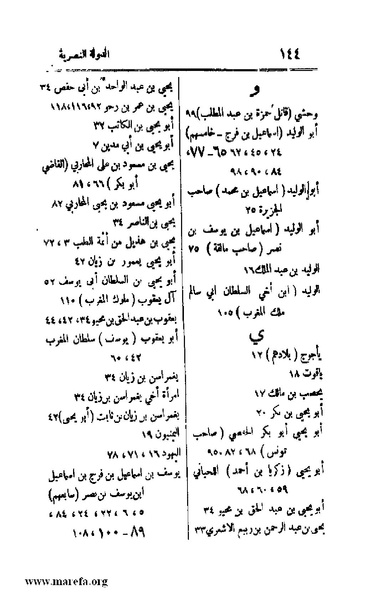 ١٤٤
الدولة النصرية
و
وحشي (قاتل حمزة بن عبد المطلب) ٩٩
أبو الوليد (اسماعيل بن فرج - خامسهم)
٢٤، ٤٥، ٦٢، ٦٥ - ٧٧،
٨٤، ٩٠، ٩٨
أبو الوليد (اسماعيل بن محمد) صاحب
الجزيرة ٢٥
أبو الوليد (اسماعيل بن يوسف بن
نصر (صاحب مالقة) ٧٥
الوليد بن عبد الملك ١٦
الوليد (ابن أخي السلطان ابي سالم
ملك المغرب) ١٠٥
ي
يأجوج (بلادهم) ١٢
ياقوت ١٨
يحصب بن مالك ١٧
أبو يحيى بن بكر ٢٠
أبو يحيى أبو بكر الحفصي (صاحب
تونس) ٦٨، ٨٢، ٩٥
أبو يحيى (زكريا بن أحمد) اللحياني
٥٩، ٦٠، ٦٨
أبو يحيى بن عبد الحق بن محيو ٣٤
يحيى بن عبد الرحمن بن ربيع الاشعري ٣٣
يحيى بن عبد الواحد بن أبي حفص ٣٤
يحيى بن عمر بن رحو ٩٢، ١١٦، ١١٨
أبو يحيى بن الكاتب ٣٧
أبو يحيى بن أبي مدين ٧
يحيى بن مسعود بن علي المحاربي (القاضي
أبو بكر) ٦٦، ٨١
أبو يحيى مسعود بن يحيى المحاربي ٨٢
يحيى بن الناصر ٣٤
يحيى بن هذيل من أئمة الطب ٣، ٧٢
أبو يحيى يعمور بن زيان ٤٢
أبو يحيى بن السلطان أبي يوسف ٥٢
آل يعقوب (ملوك المغرب) ١١٠
يعقوب بن عبد الحق بن محيو ٣٤، ٤٢، ٤٤
أبو يعقوب (يوسف) سلطان المغرب
٤٢، ٦٥
يغمراسن بن زيان ٣٤
امرأة أخي يغمراسن بن زيان ٣٤
يغمراسن بن زيان بن ثابت (أبو يحيى) ٤٢
اليمنيون ١٩
اليهود ١٦، ٧١، ٧٨
يوسف بن اسماعيل بن فرج بن اسماعيل
ابن يوسف بن نصر (سابعهم)
٥، ٦، ٢٢، ٢٤، ٨٤،
٨٩ - ١٠٠، ١٠٨
www.marefa.org